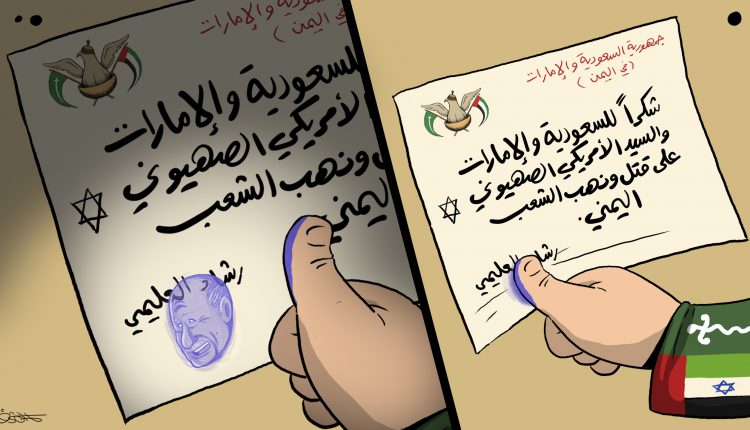 جمهورية السعودية والإمارات
(في اليمن)
شكراً للسعودية والإمارات
والسيد الأمريكي الصهيوني
على قتل ونهب الشعب
اليمني.
رشاد العليمي
السعودية والإمارات
في اليمن)
للسعودية والإمارات
الأمريكي الصهيوني
ونهب الشعب
اليمني.
رشاد العليمي